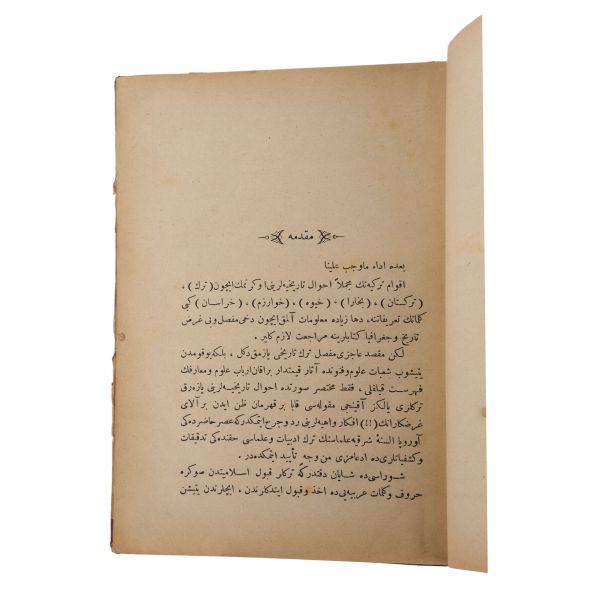 مقدمه
بعده اداء ماوجب علینا
اقوام تركیه‌نك مجملاً احوال تاریخیه‌لرینی اوكرنمك ایچون (ترك) ،
(تركستان) ، (بخارا) ، (خیوه) ، (خوارزم) ، (خراسان) كبی
كلماتك تعریفاتنه، دها زیاده معلومات آلمق ایچون دخی مفصل و بی غرض
تاریخ و جغرافیا كتابلرینه مراجعت لازم كلیر .
لكن مقصد عاجزی مفصل ترك تاریخی یازمق دكل ، بلكه بو قومدن
یتیشوب شعبات علوم و فنونده آثار قیمتدار براقان ارباب علوم و معارفك
فهرست قیلقلی ، فقط مختصر صورتده احوال تاریخیه‌لرینی یازه‌رق
تركلری یالكز آقینجی مقوله‌سی قابا بر قهرمان ظن ایدن بر آلای
غرضكارانك (!!) افكار واهیه‌لرینی رد و جرح ایتمكدركه عصر حاضرده‌كی
آوروپا السنۀ شرقیه علماسنك ترك ادبیات و علماسی حقنده‌كی تدقیقات
و كشفیاتلری ده ادعامزی من وجه تأیید ایتمكده‌در .
شوراسی ده شایان دقتدر كه تركلر قبول اسلامیتدن صوكره
حروف و كلمات عربیه‌یی ده اخذ و قبول ایتدكلرندن ، ایچلرندن یتیشن